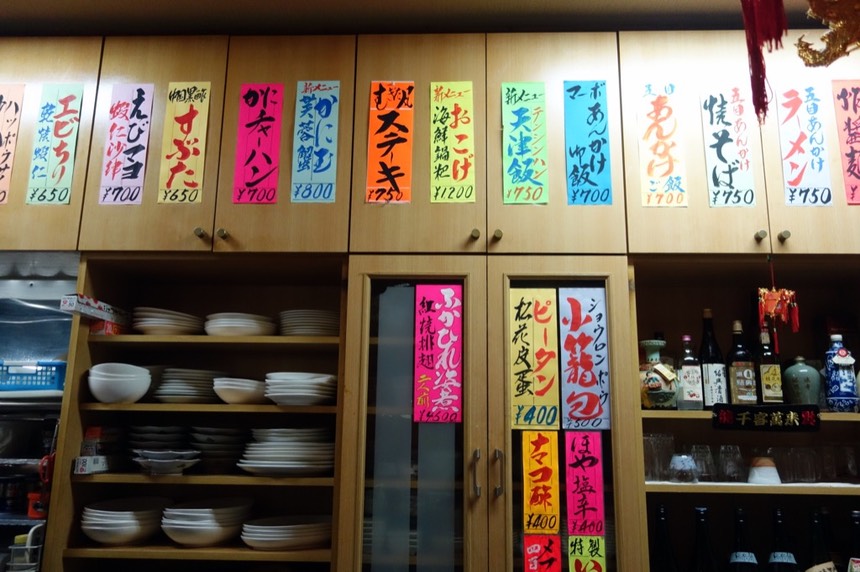 エビちり
乾焼蝦仁
¥650
えびマヨ
蝦仁沙律
¥700
中国黒酢
すぶた
¥650
かにチャーハン
¥700
新メニュー
かに玉
芙蓉蟹
¥800
ステーキ
¥750
新メニュー
おこげ
海鮮鍋粑
¥1200
新メニュー
テンシンハン
天津飯
¥750
マーボあんかけ
御飯
¥700
五目
あんかけ
ご飯
¥700
五目あんかけ
焼そば
¥750
五目あんかけ
ラーメン
¥750
ふかひれ姿煮
紅焼排翅
¥4500
ピータン
松花皮蛋
¥400
ショウロンポウ
小籠包
¥500
ナマコ酢
¥400
ほや塩辛
¥400
特製
千客萬来